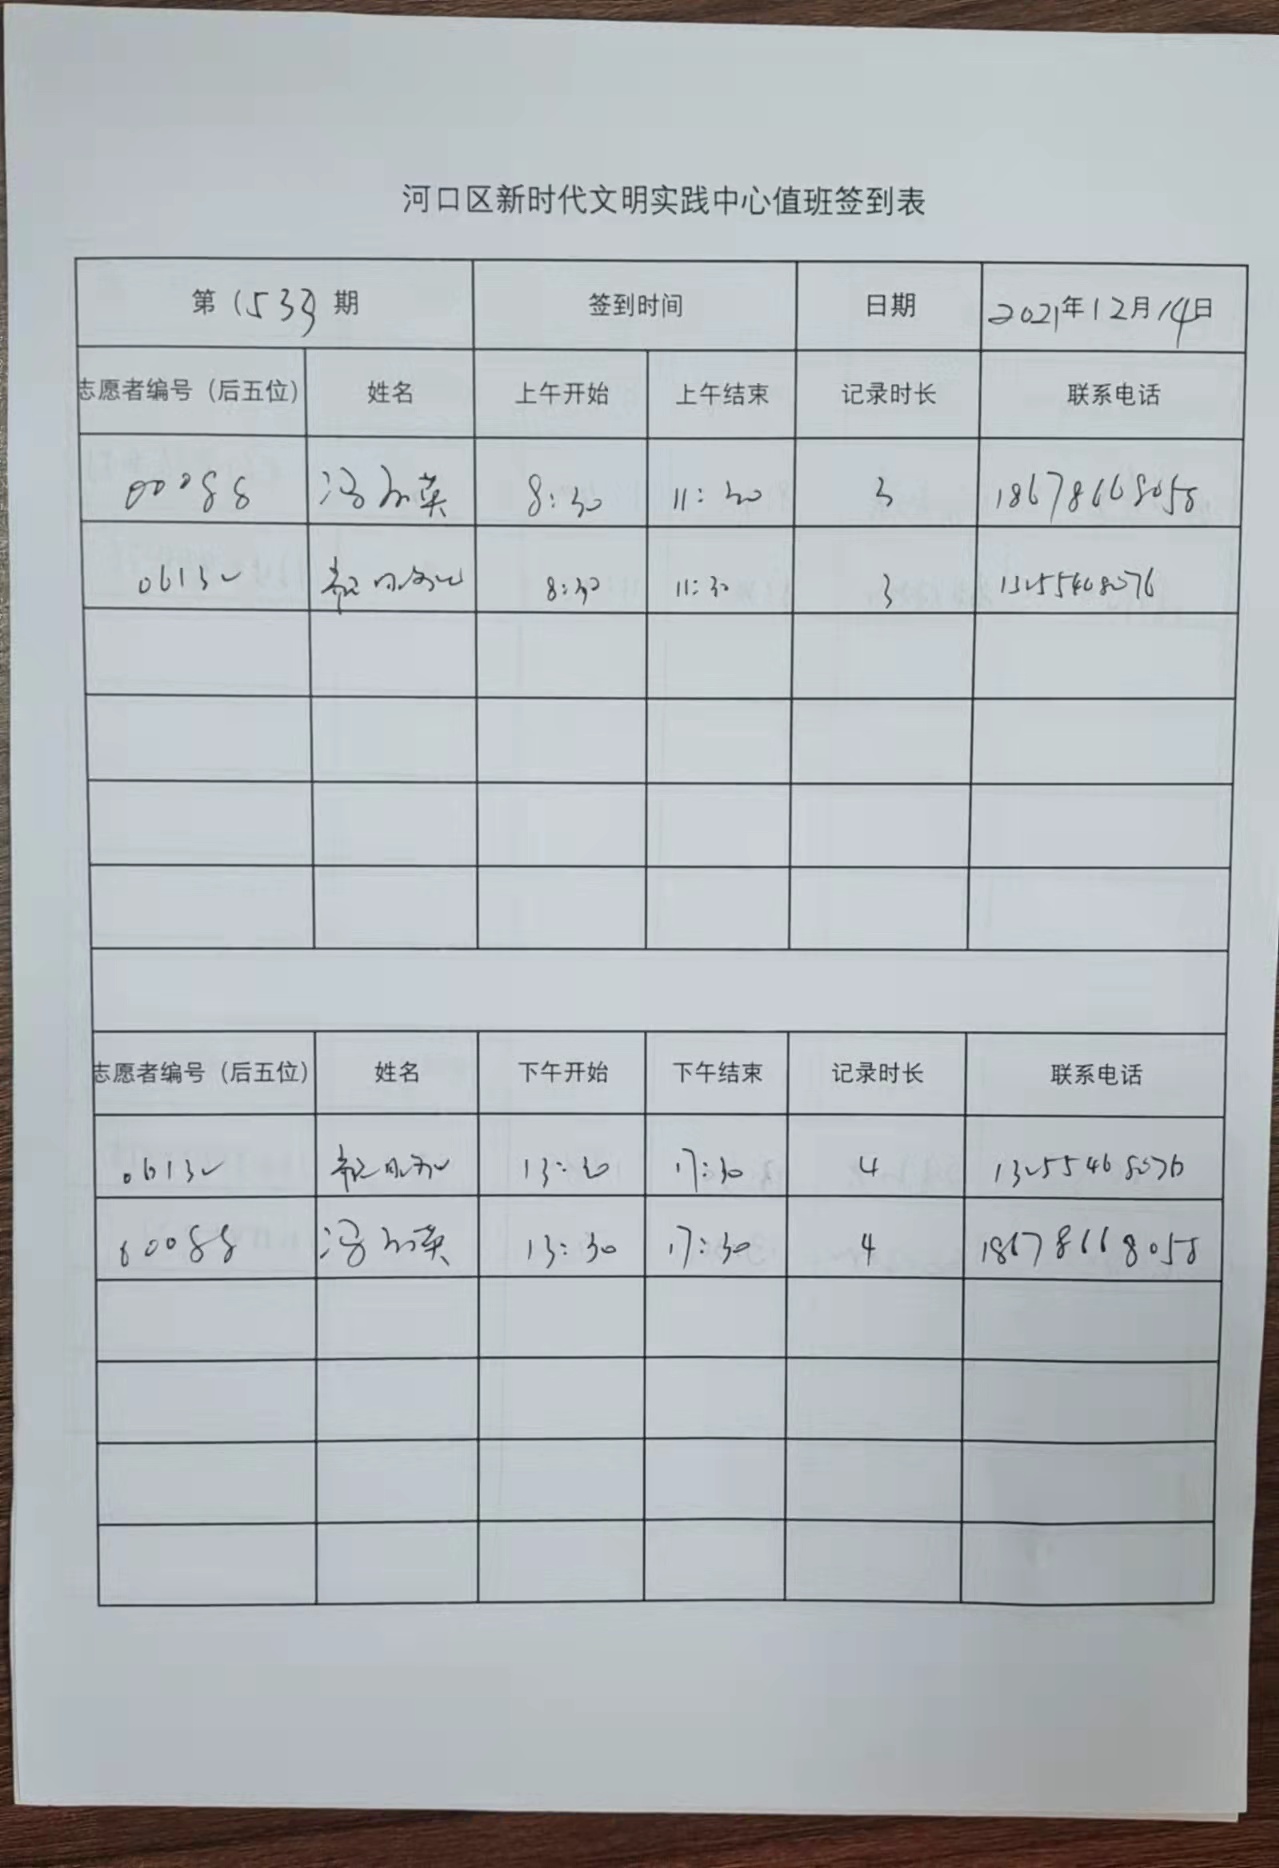 河口区新时代文明实践中心值班签到表
第(533)期 签到时间 日期 2021年12月14日
志愿者编号（后五位） 姓名 上午开始 上午结束 记录时长 联系电话
00088 冯 英 8:30 11:30 3 18678668058
06132 8:30 11:30 3 13255468076
志愿者编号（后五位） 姓名 下午开始 下午结束 记录时长 联系电话
06132 13:30 17:30 4 13255468076
00088 冯 英 13:30 17:30 4 18678668058